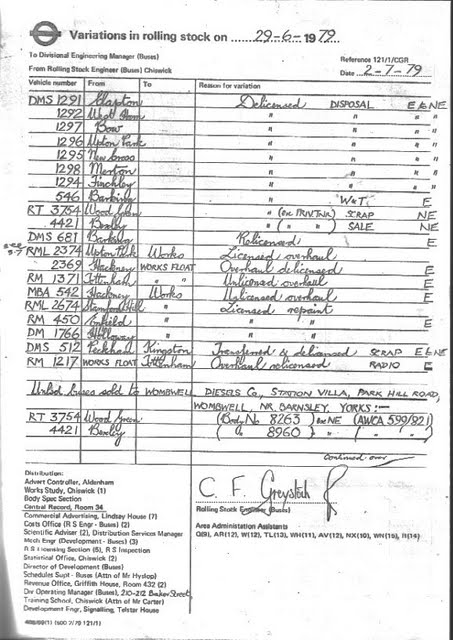 Variations in rolling stock on 29-6-1979
To Divisional Engineering Manager (Buses)
Reference 121/1/CGR
From Rolling Stock Engineer (Buses) Chiswick
Date 2-7-79
Vehicle number From To Reason for variation
DMS 1291 Clapton Delicensed DISPOSAL E & NE
1292 West Ham " " "
1297 Bow " " "
1296 Upton Park " " "
1295 New Cross " " "
1298 Merton " " "
1294 Finchley " " "
546 Barking " W&T E
RT 3754 Wood Green " (ex PRV/TNR) SCRAP NE
4421 Bexley " ( " " ) SALE NE
DMS 681 Barking Relicensed E
RML 2374 Upton Park Works Licensed overhaul
2369 Hackney WORKS FLOAT Overhaul delicensed E
RM 1371 Tottenham " " Unlicensed overhaul E
MBA 542 Hackney Works Unlicensed overhaul E
RML 2674 Stamford Hill " Licensed repaint
RM 450 Enfield " " " E
DM 1766 Holloway " " "
DMS 512 Peckham Kingston Transferred & delicensed SCRAP E & NE
RM 1217 WORKS FLOAT Tottenham Overhaul relicensed RADIO E
Unlsd buses sold to WOMBWELL DIESELS Co., STATION VILLA, PARK HILL ROAD,
WOMBWELL, NR. BARNSLEY, YORKS :-
RT 3754 Wood Green (Body No 8263 ) ex NE (AWCA 599/821)
4421 Bexley ( " 8960 ) " ( " " )
Continued over
Distribution:
Advert Controller, Aldenham
Works Study, Chiswick (1)
Body Spec Section
Central Record, Room 34
Commercial Advertising, Lindsay House (7)
Costs Office (R S Engr - Buses) (2)
Scientific Adviser (2), Distribution Services Manager
Mech Engr (Development - Buses) (3)
R S Licensing Section (5), R S Inspection
Statistical Office, Chiswick (2)
Director of Development (Buses)
Schedules Supt - Buses (Attn of Mr Hyslop)
Revenue Office, Griffith House, Room 432 (2)
Div Operating Manager (Buses), 210-212 Baker Street
Training School, Chiswick (Attn of Mr Carter)
Development Engr, Signalling, Telstar House
C. F. Greystock
Rolling Stock Engineer (Buses)
Area Administration Assistants
Q(9), AR(12), W(12), TL(13), WH(11), AV(12), NX(10), WN(15), R(14)